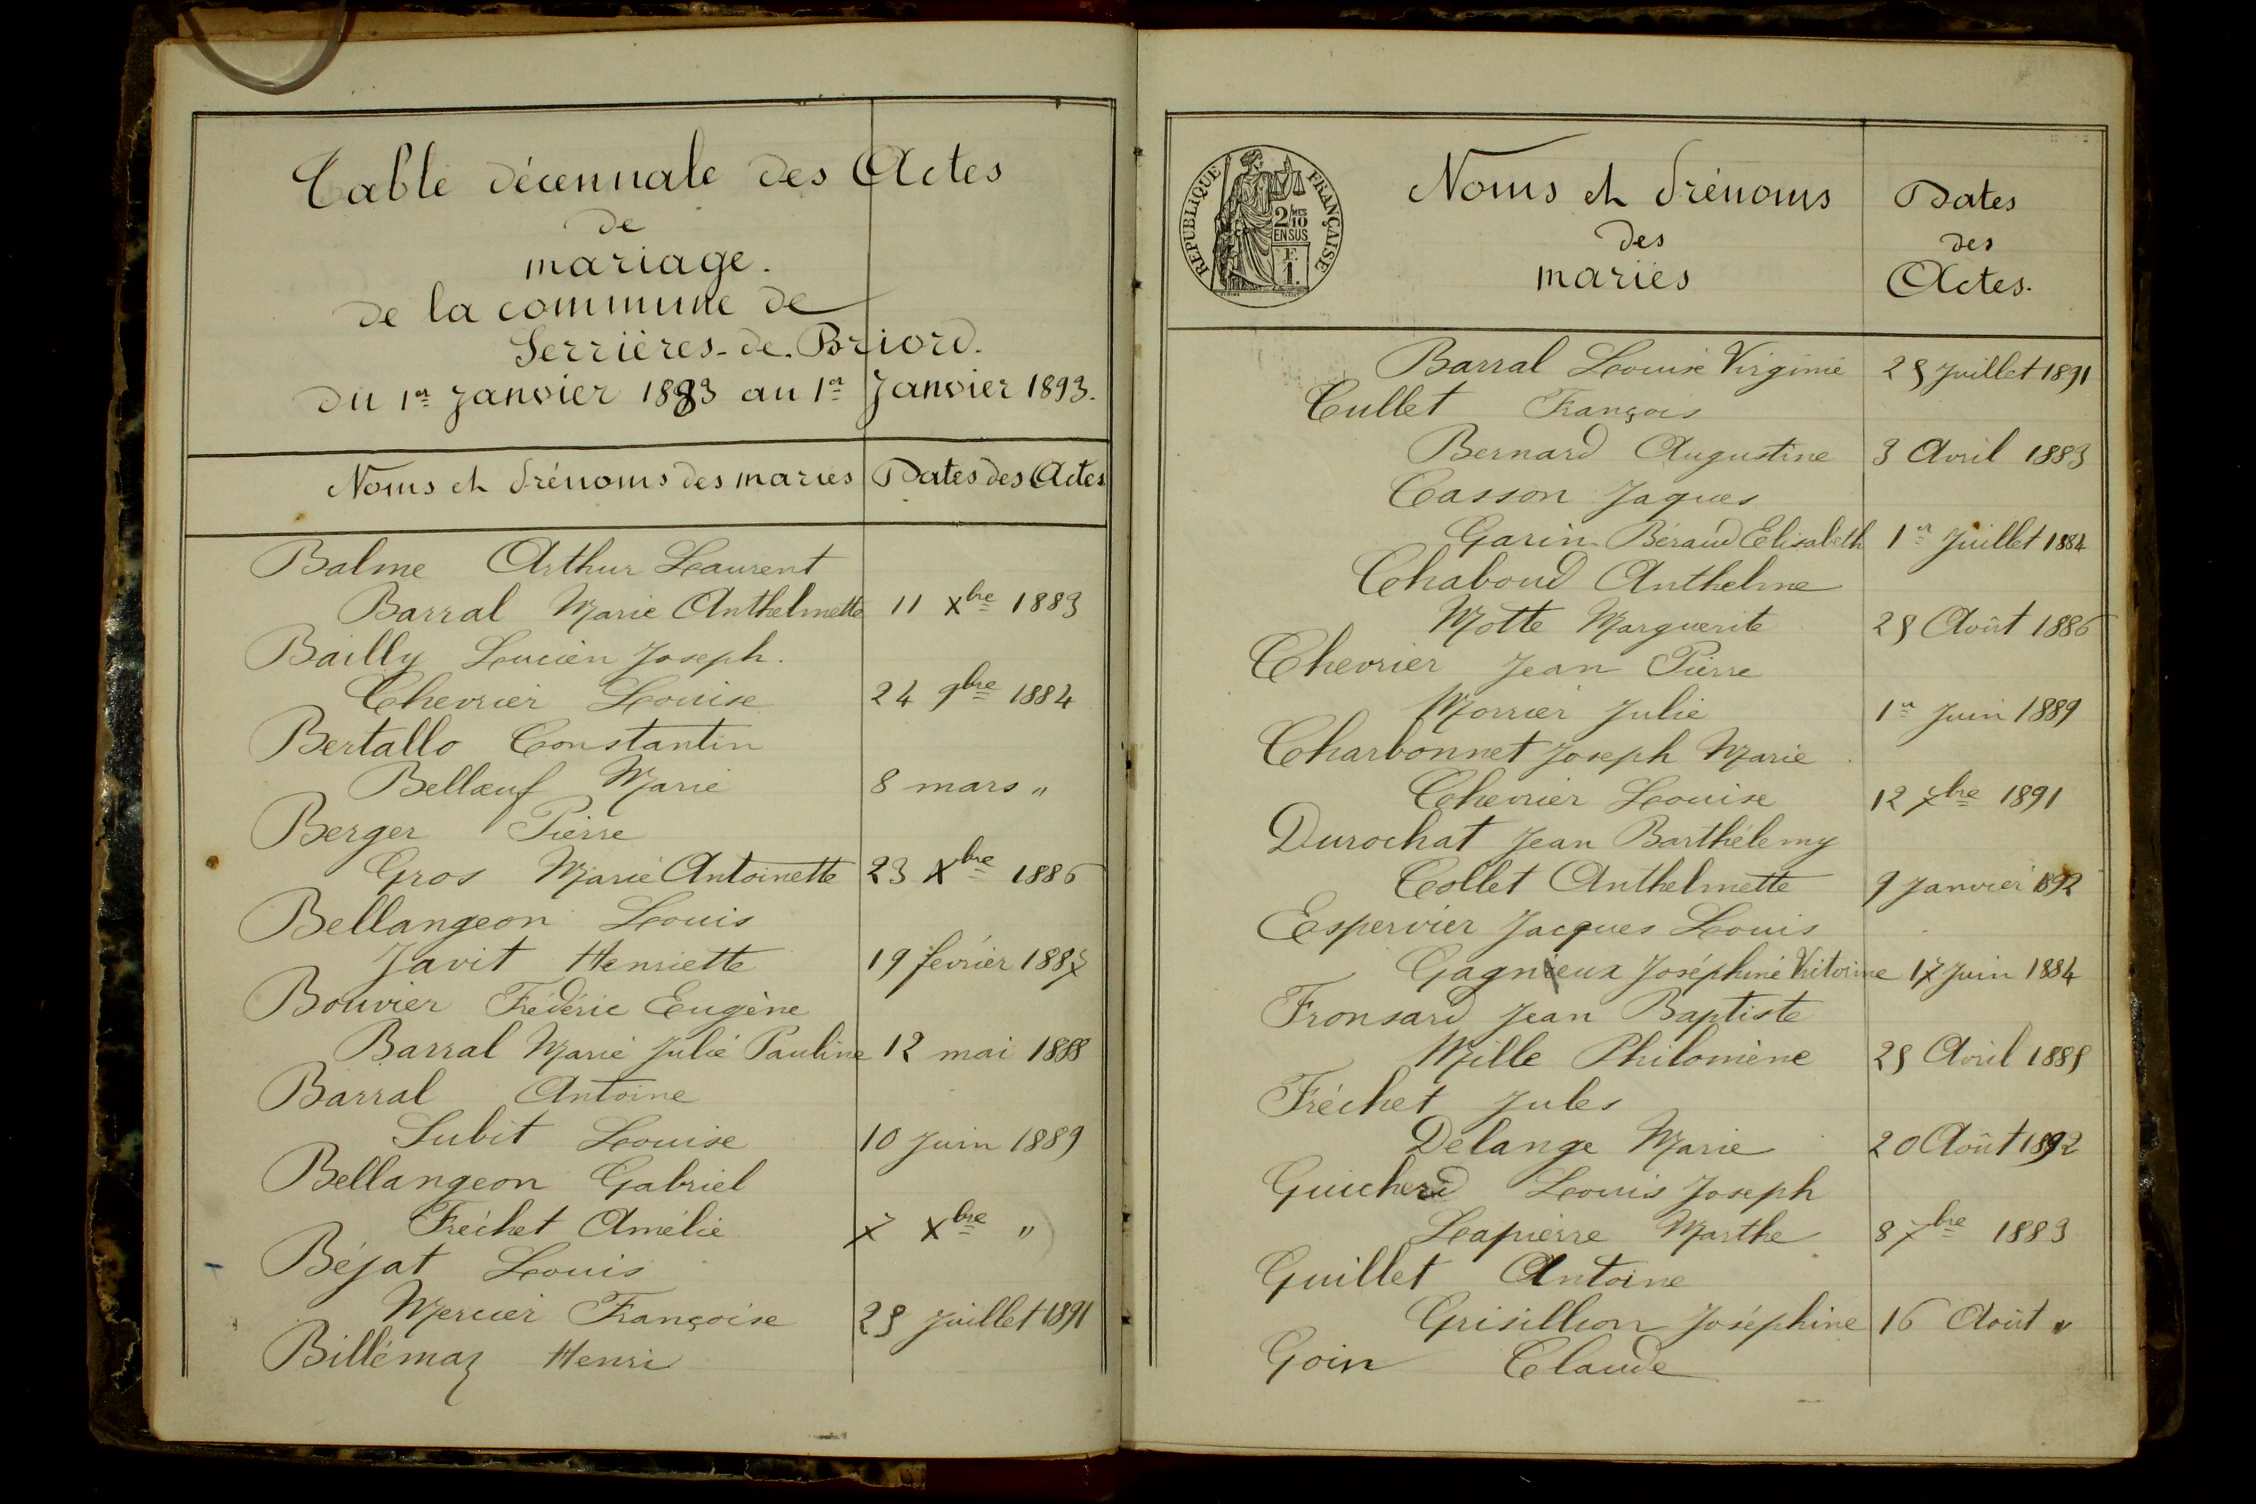 Table décennale des Actes
de
mariage.
de la commune de
Serrières-de-Briord.
du 1er janvier 1883 au 1er Janvier 1893.
Noms et Prénoms des mariés Dates des Actes
Balme Arthur Laurent
Barral Marie Anthelmette 11 Xbre 1883
Bailly Lucien Joseph.
Chevrier Louise 24 9bre 1884
Bertallo Constantin
Bellœuf Marie 8 mars "
Berger Pierre
Gros Marie Antoinette 23 Xbre 1886
Bellangeon Louis
Javit Henriette 19 février 188
Bouvier Frédéric Eugène
Barral Marie Julie Pauline 12 mai 1888
Barral Antoine
Subit Louise 10 Juin 1889
Bellangeon Gabriel
Fréchet Amélie 7 Xbre "
Béjat Louis
Mercier Françoise Juillet 1891
Billémaz Henri
RÉPUBLIQUE FRANÇAISE
2/10 MES
EN SUS
F.
1.
Noms et Prénoms Dates
des des
mariés Actes.
Barral Louise Virginie Juillet 1891
Cullet François
Bernard Augustine 3 Avril 1883
Casson Jaques
Garin-Béraud Elisabeth 1er Juillet 1884
Chaboud Anthelme
Motte Marguerite Août 1886
Chevrier Jean Pierre
Morrier Julie 1er Juin 1889
Charbonnet Joseph Marie
Chevrier Louise 12 7bre 1891
Durochat Jean Barthélemy
Collet Anthelmette 9 Janvier 1892
Espervier Jacques Louis
Gagnieux Joséphine Victorine 17 Juin 1884
Fronsard Jean Baptiste
Mille Philomène Avril
Fréchet Jules
Délange Marie 20 Août 1892
Guicherd Louis Joseph
Lapierre Marthe 8 7bre 1883
Guillet Antoine
Grisillion Joséphine 16 Août "
Goin Claude